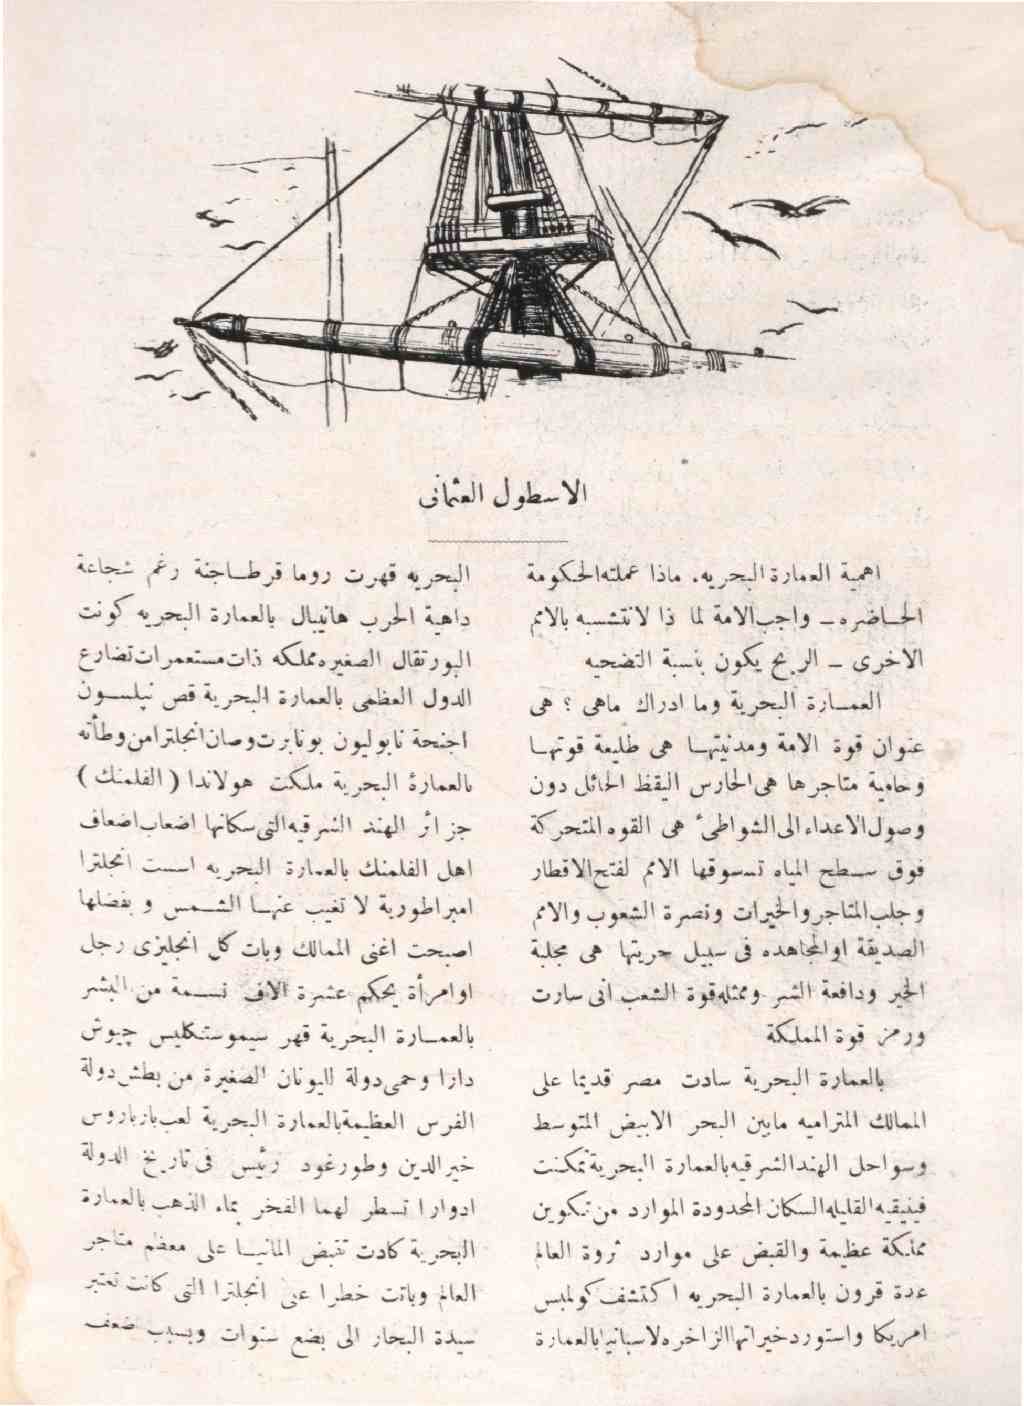 الاسطول العثمانى
اهمية العمارة البحريه. ماذا عملته الحكومة
الحاضره — واجب الامة لما ذا لانتشبه بالامم
الاخرى — الربح يكون بنسبة التضحيه
العمارة البحرية وما ادراك ماهى ؟ هى
عنوان قوة الامة ومدنيتها هى طليعة قوتها
وحامية متاجرها هى الحارس اليقظ الحائل دون
وصول الاعداء الى الشواطىء هى القوه المتحركة
فوق سطح المياه تسوقها الامم لفتح الاقطار
وجلب المتاجر والخيرات ونصرة الشعوب والامم
الصديقة او المجاهده فى سبيل حريتها هى مجلبة
الخير ودافعة الشر وممثله قوة الشعب انى سارت
ورمز قوة المملكة
بالعمارة البحرية سادت مصر قديما على
الممالك المتراميه مابين البحر الابيض المتوسط
وسواحل الهند الشرقيه بالعمارة البحرية تمكنت
فينيقيه القليله السكان المحدودة الموارد من تكوين
مملكة عظيمة والقبض على موارد ثروة العالم
عدة قرون بالعمارة البحريه اكتشف كولمبس
امريكا واستورد خيراتها الزاخره لاسبانيا بالعمارة
البحريه قهرت روما قرطاجنة رغم شجاعة
داهية الحرب هانيبال بالعمارة البحريه كونت
البورتقال الصغيره مملكه ذات مستعمرات تضارع
الدول العظمى بالعمارة البحرية قص نيلسون
اجنحة نابوليون بونابرت وصان انجلترا من وطأته
بالعمارة البحرية ملكت هولاندا ( الفلمنك )
جزائر الهند الشرقيه التى سكانها اضعاب اضعاف
اهل الفلمنك بالعمارة البحريه اسست انجلترا
امبراطورية لا تغيب عنها الشمس و بفضلها
اصبحت اغنى الممالك وبات كل انجليزى رجل
او امرأة يحكم عشرة الاف نسمة من البشر
بالعمارة البحرية قهر سيموستكليس جيوش
دارا وحمى دولة اليونان الصغيرة من بطش دولة
الفرس العظيمة بالعمارة البحرية لعب بارباروس
خيرالدين وطورغود رئيس فى تاريخ الدولة
ادوارا تسطر لهما الفخر بماء الذهب بالعمارة
البحرية كادت تقبض المانيا على معظم متاجر
العالم وباتت خطرا على انجلترا التى كانت تعتبر
سيدة البحار الى بضع سنوات وبسبب ضعف